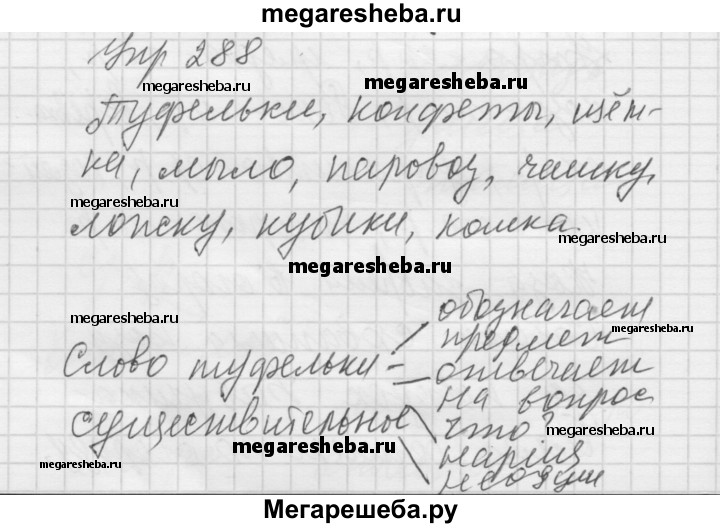 megaresheba.ru
Упр 288
megaresheba.ru
megaresheba.ru
megaresheba.ru
Туфельки, конфеты, щён-
ка, мыло, паровоз, чашку,
megaresheba.ru
ложку, кубики, кошка.
megaresheba.ru
megaresheba.ru
megaresheba.ru
обозначает
предмет
megaresheba.ru
Слово туфельки -
отвечает
на вопрос
существительное
что?
megaresheba.ru
megaresheba.ru
нариц
megaresheba.ru
неодуш
Мегарешеба.ру